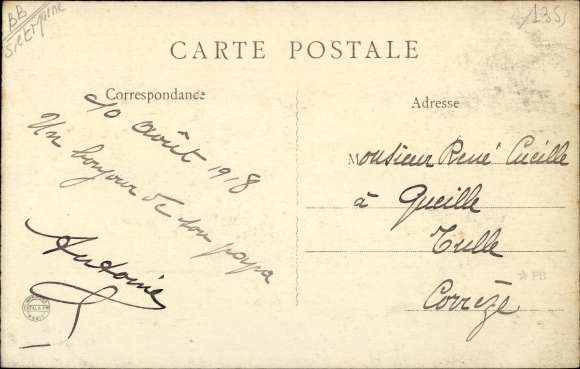 BB
S et Marne
1355
CARTE POSTALE
Correspondance
10 août 1918
Un bonjour de ton papa
Antoine
Adresse
Monsieur René Cueille
à Queille
Tulle
Corrèze
PB
PARIS